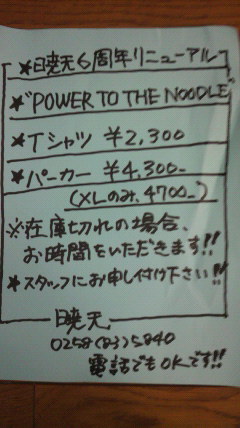 ★日暁天6周年リニューアル
★"POWER TO THE NOODLE"
★Tシャツ ¥2,300
★パーカー ¥4,300-
(XLのみ、4700-)
※在庫切れの場合、
お時間をいただきます!!
★スタッフにお申し付け下さい!!
暁天
0258(83)5840
電話でもOKです!!